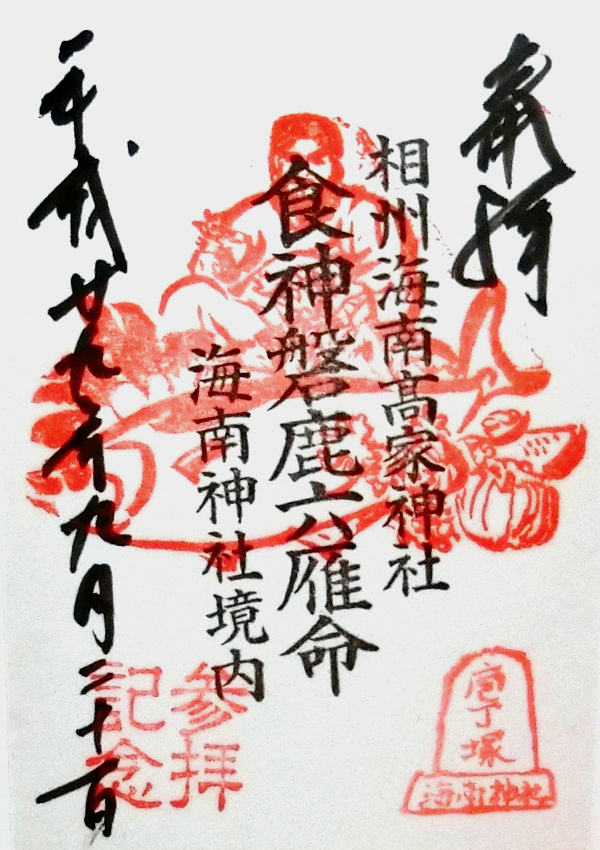 奉拝
相州海南高家神社
食神磐鹿六雁命
海南神社境内
平成廿九年九月二十一日
参拝
記念
庖丁塚
海南神社